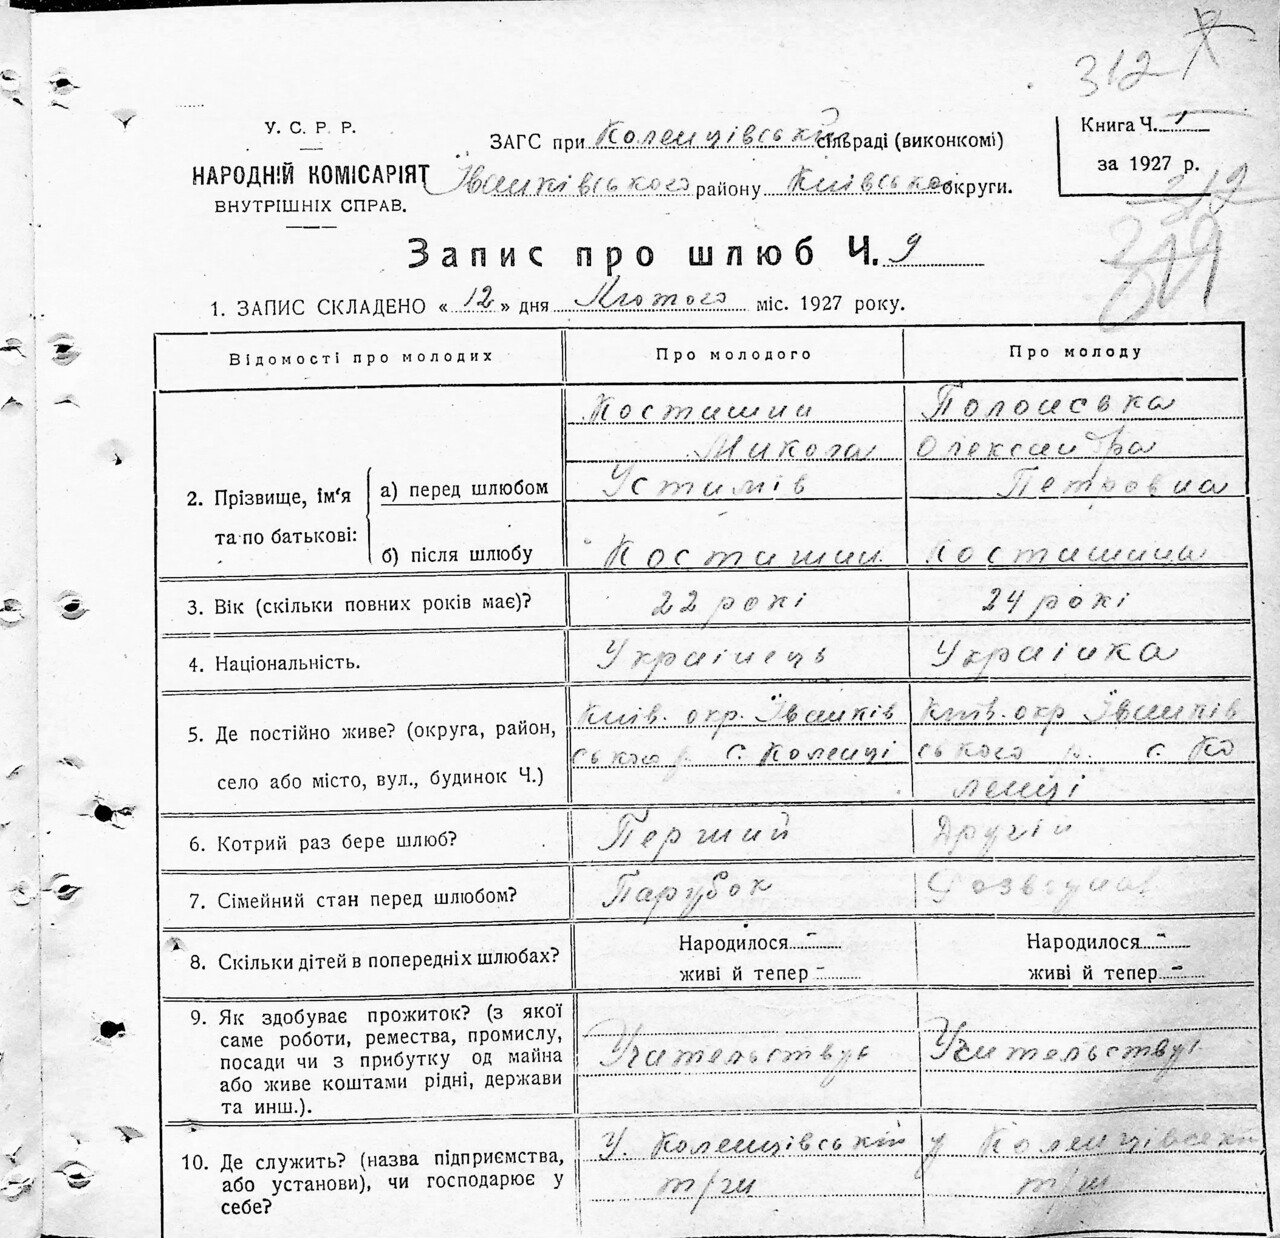 312
У. С. Р. Р.
НАРОДНІЙ КОМІСАРІЯТ
ВНУТРІШНІХ СПРАВ.
ЗАГС при Коленцівській сільраді (виконкомі)
Іванківського району Київської округи.
Книга Ч. 1
за 1927 р.
312
319
Запис про шлюб Ч. 9
1. ЗАПИС СКЛАДЕНО « 12 » дня Лютого міс. 1927 року.
Відомості про молодих Про молодого Про молоду
2. Прізвище, ім'я та по батькові:
а) перед шлюбом
Костишин
Микола
Устимів
Олександра
Петровна
б) після шлюбу Костишин Костишина
3. Вік (скільки повних років має)? 22 рокі 24 рокі
4. Національність. Украінець Украінка
5. Де постійно живе? (округа, район,
село або місто, вул., будинок Ч.)
Київ. окр. Їванків
ського р. с. Коленці
Київ. окр. Їванків
ського р. с. Ко
ленці
6. Котрий раз бере шлюб? Перший Другий
7. Сімейний стан перед шлюбом? Парубок
8. Скільки дітей в попередніх шлюбах?
Народилося -
живі й тепер -
Народилося -
живі й тепер -
9. Як здобуває прожиток? (з якої
саме роботи, ремества, промислу,
посади чи з прибутку од майна
або живе коштами рідні, держави
та инш.).
Учительствує
Учительствує
10. Де служить? (назва підприємства,
або установи), чи господарює у
себе?
У. Коленцівській
т/ш
у Коленцівській
т/ш